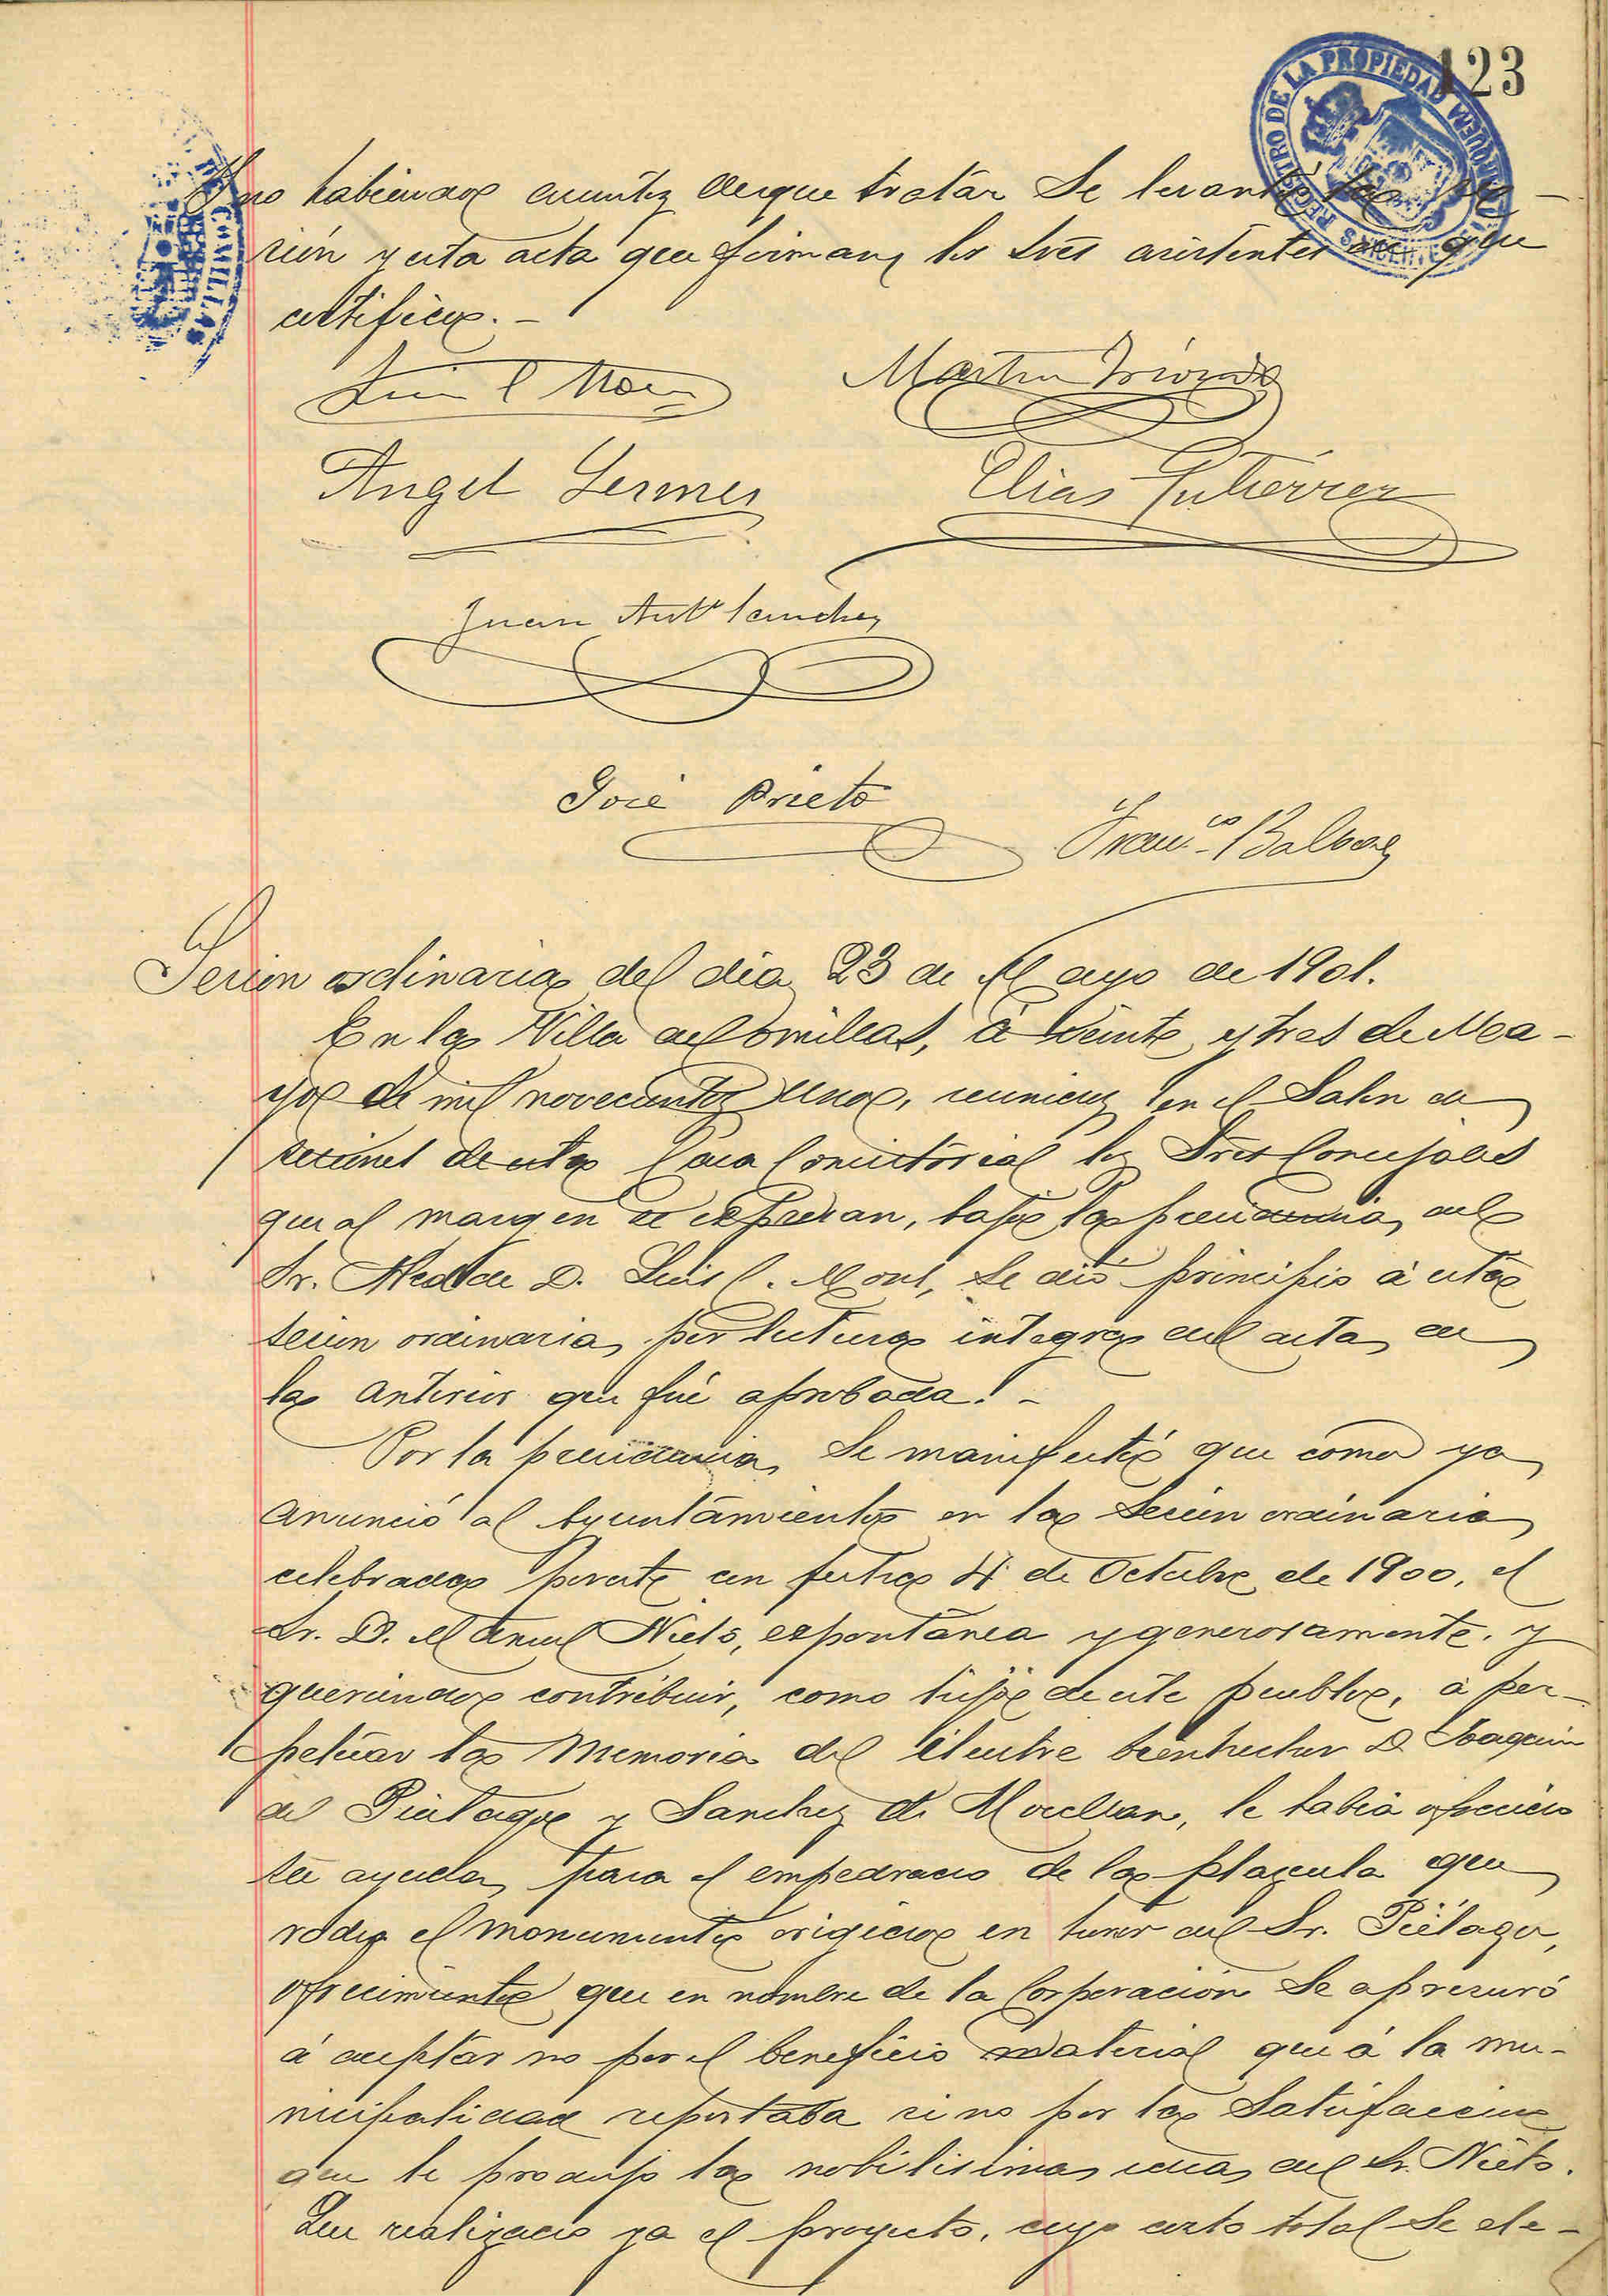 123
REGISTRO DE LA PROPIEDAD
COMILLAS
Y no habiendo asuntos de que tratar se levantó la se-
sión y esta acta que firman los Sres asistentes de que
certifico.-
Luis C Mons
Martin
Angel Lermes
Elias Gutiérrez
Juan Antº Sanchez
José Prieto
Franco Balbas
Sesion ordinaria del dia 23 de Mayo de 1901.
En la Villa de Comillas, á veinte y tres de Ma-
yo de mil novecientos uno, reunidos en el Salon de
sesiones de esta Casa Consistorial los Sres Concejales
que al margen se expresan, bajo la presidencia del
Sr. Alcalde D. Luis C. Mons, se dió principio á esta
sesion ordinaria por lectura integra del acta de
la anterior que fué aprobada.-
Por la presidencia se manifestó que como ya
anunció al Ayuntamiento en la sesion ordinaria
celebrada por este en fecha 4 de Octubre de 1900, el
Sr. D. Manuel Nieto, espontánea y generosamente, y
queriendo contribuir, como hijo de este pueblo, á per-
petuar la memoria del ilustre bienhechor D Joaquin
del Pielago y Sanchez de Movellan, le habia ofrecido
su ayuda para el empedrado de la plazuela que
rodea el monumento erigido en honor del Sr. Piélago,
ofrecimiento que en nombre de la Corporacion se apresuró
á aceptar no por el beneficio material que á la mu-
nicipalidad reportaba sino por la satisfaccion
que le produjo la nobilisima idea del Sr. Nieto.
Que realizado ya el proyecto, cuyo costo total se ele-